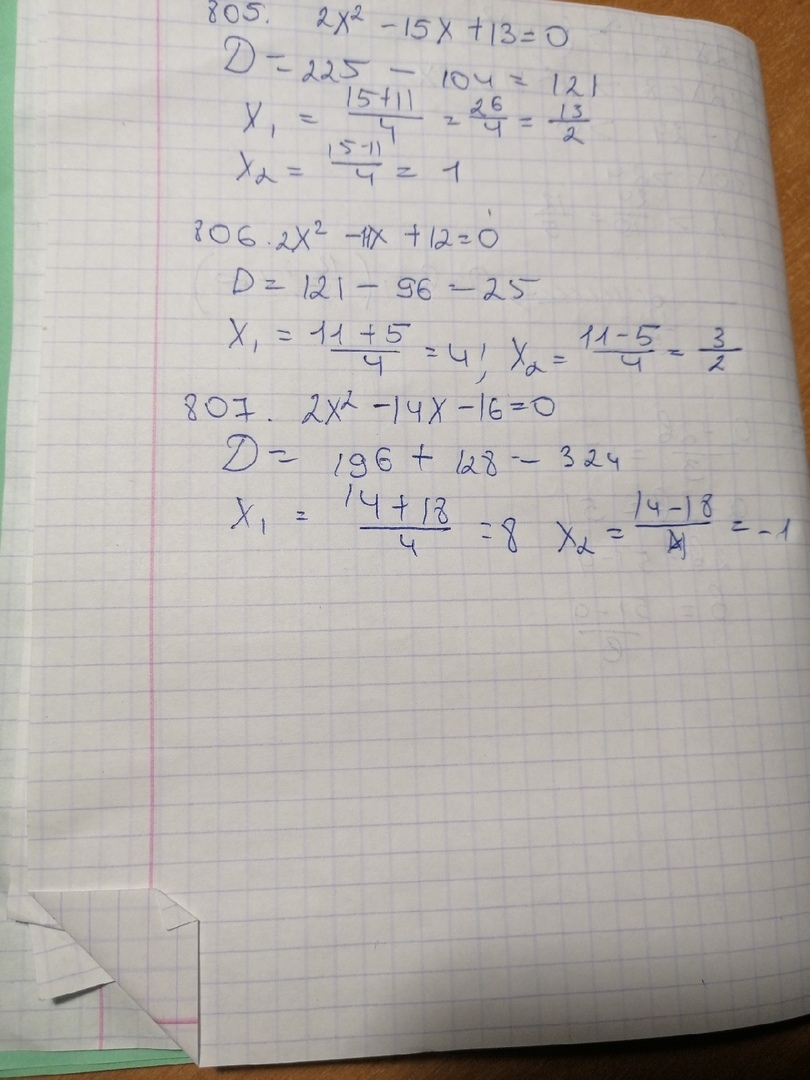 805. 2x² - 15x + 13 = 0
D = 225 - 104 = 121
x₁ = (15+11)/4 = 26/4 = 13/2
x₂ = (15-11)/4 = 1
806. 2x² - 11x + 12 = 0
D = 121 - 96 = 25
x₁ = (11+5)/4 = 4; x₂ = (11-5)/4 = 3/2
807. 2x² - 14x - 16 = 0
D = 196 + 128 = 324
x₁ = (14+18)/4 = 8 x₂ = (14-18)/4 = -1